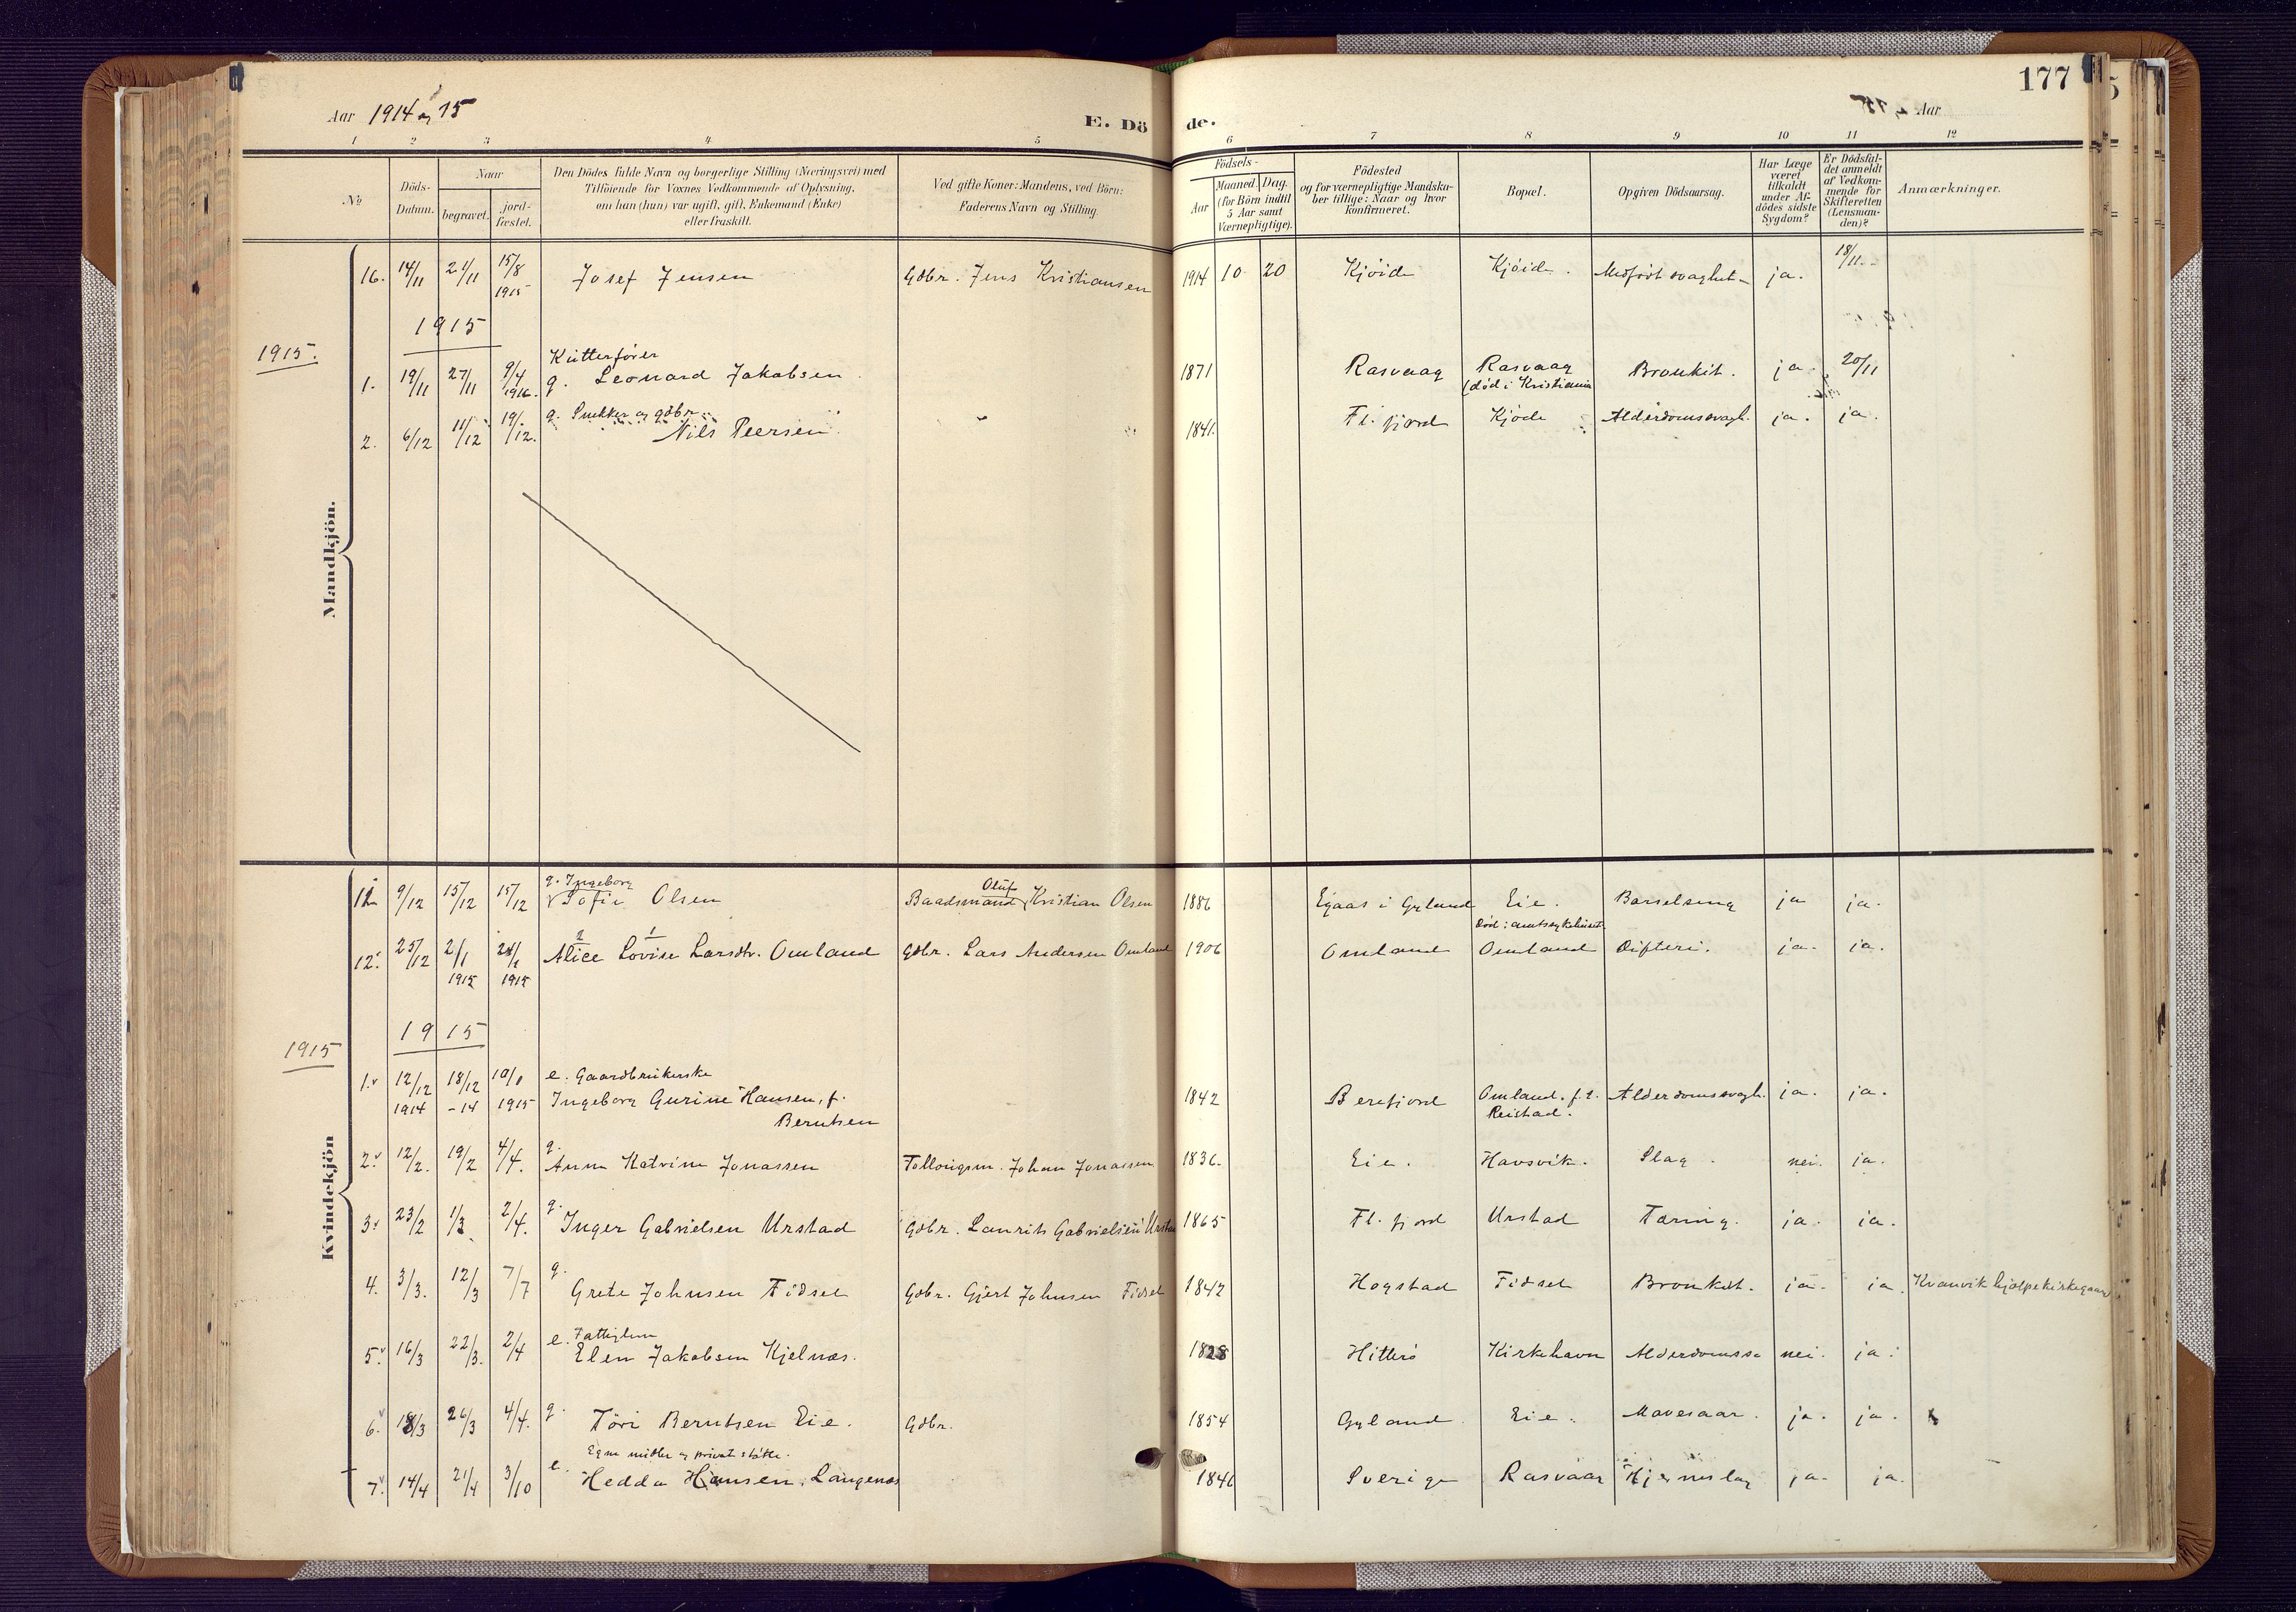 177
Aar 1914 og 15
E. Dö de.
Aar
1 2 3 4 5 6 7 8 9 10 11 12
No
Döds-
Datum.
Naar
begravet.
jord-
fæstet.
Den Dödes fulde Navn og borgerlige Stilling (Næringsvei) med
Tilföiende for Voxnes Vedkommende af Oplysning,
om han (hun) var ugift, gift, Enkemand (Enke)
eller fraskilt.
Ved gifte Koner: Mandens, ved Börn:
Faderens Navn og Stilling.
Födsels-
Aar
Maaned. Dag.
(for Börn indtil
5 Aar samt
Værnepligtige).
Födested
og for værnepligtige Mandska-
ber tillige: Naar og hvor
konfirmeret.
Bopæl.
Opgiven Dödsaarsag.
Har Læge
været
tilkaldt
under Af-
dödes sidste
Sygdom?
Er Dödsfal-
det anmeldt
af Vedkom-
mende for
Skifteretten
(Lensman-
den)?
Anmærkninger.
Mandkjön.
16. 14/11 21/11 15/8 1915 Josef Jensen Gdbr. Jens Kristiansen 1914 10 20 Kjöide Kjöide. Medfödt svaghet ja. 18/11
1915
1915.
Kutterförer
1. 19/11 27/11 9/4 1916. g. Leonard Jakobsen 1871 Rasvaag Rasvaag Bronkit. ja. 20/11
(död i Kristiania
g. Snekker og gdbr.
2. 6/12 11/12 19/12. Nils Peersen 1841. Fl. fjord Kjöde Alderdomssvagh. ja. ja.
Kvindekjön
g. Ingeborg
11 9/12 15/12 15/12 Sofie Olsen Baadsmand Oluf Kristian Olsen 1886 Egaas i Gyland Eie. Barselseng ja ja.
Död i amtssykehuset
12. 25/12 2/1 1915 24/1 1915 Alice Lovise Larsdtr. Omland Gdbr. Lars Andersen Omland 1906 Omland Omland Difteri. ja. ja.
1915
1915
1. 12/12 1914 18/12 -14 10/1 1915 e. Gaardbrukerske
Ingeborg Gurine Hansen, f.
Berntsen 1842 Berefjord Omland. f. t. Reistad. Alderdomssvagh. ja. ja.
2. 12/2. 19/2 4/4. g. Anna Katrine Jonassen Tollopsynsm. Johan Jonassen 1836. Eie. Havsvik. Slag. nei. ja.
3. 23/2 1/3 2/4. g. Inger Gabrielsen Urstad Gdbr. Laurits Gabrielsen Urstad 1865 Fl. fjord Urstad Tæring. ja. ja.
4. 3/3. 12/3 7/7 g. Grete Johnsen Fidsel Gdbr. Gjert Johnsen Fidsel 1842 Hogstad Fidsel Bronkit. ja. ja. Kvanvik hjælpekirkegaard
5. 16/3 22/3. 2/4 e. Fattiglem
Elen Jakobsen Kjelnæs. 1828 Hitterö Kirkehavn Alderdomss. nei. ja.
6. 18/3 26/3 4/4. g. Töri Berntsen Eie. Gdbr. 1854 Gyland Eie. Mavesaar. ja. ja.
Egne midler og privat stötte.
7. 14/4 21/4 3/10 e. Hedda Hansen, Langenæs 1846 Sverige Rasvaag Hjerneslag ja. ja.